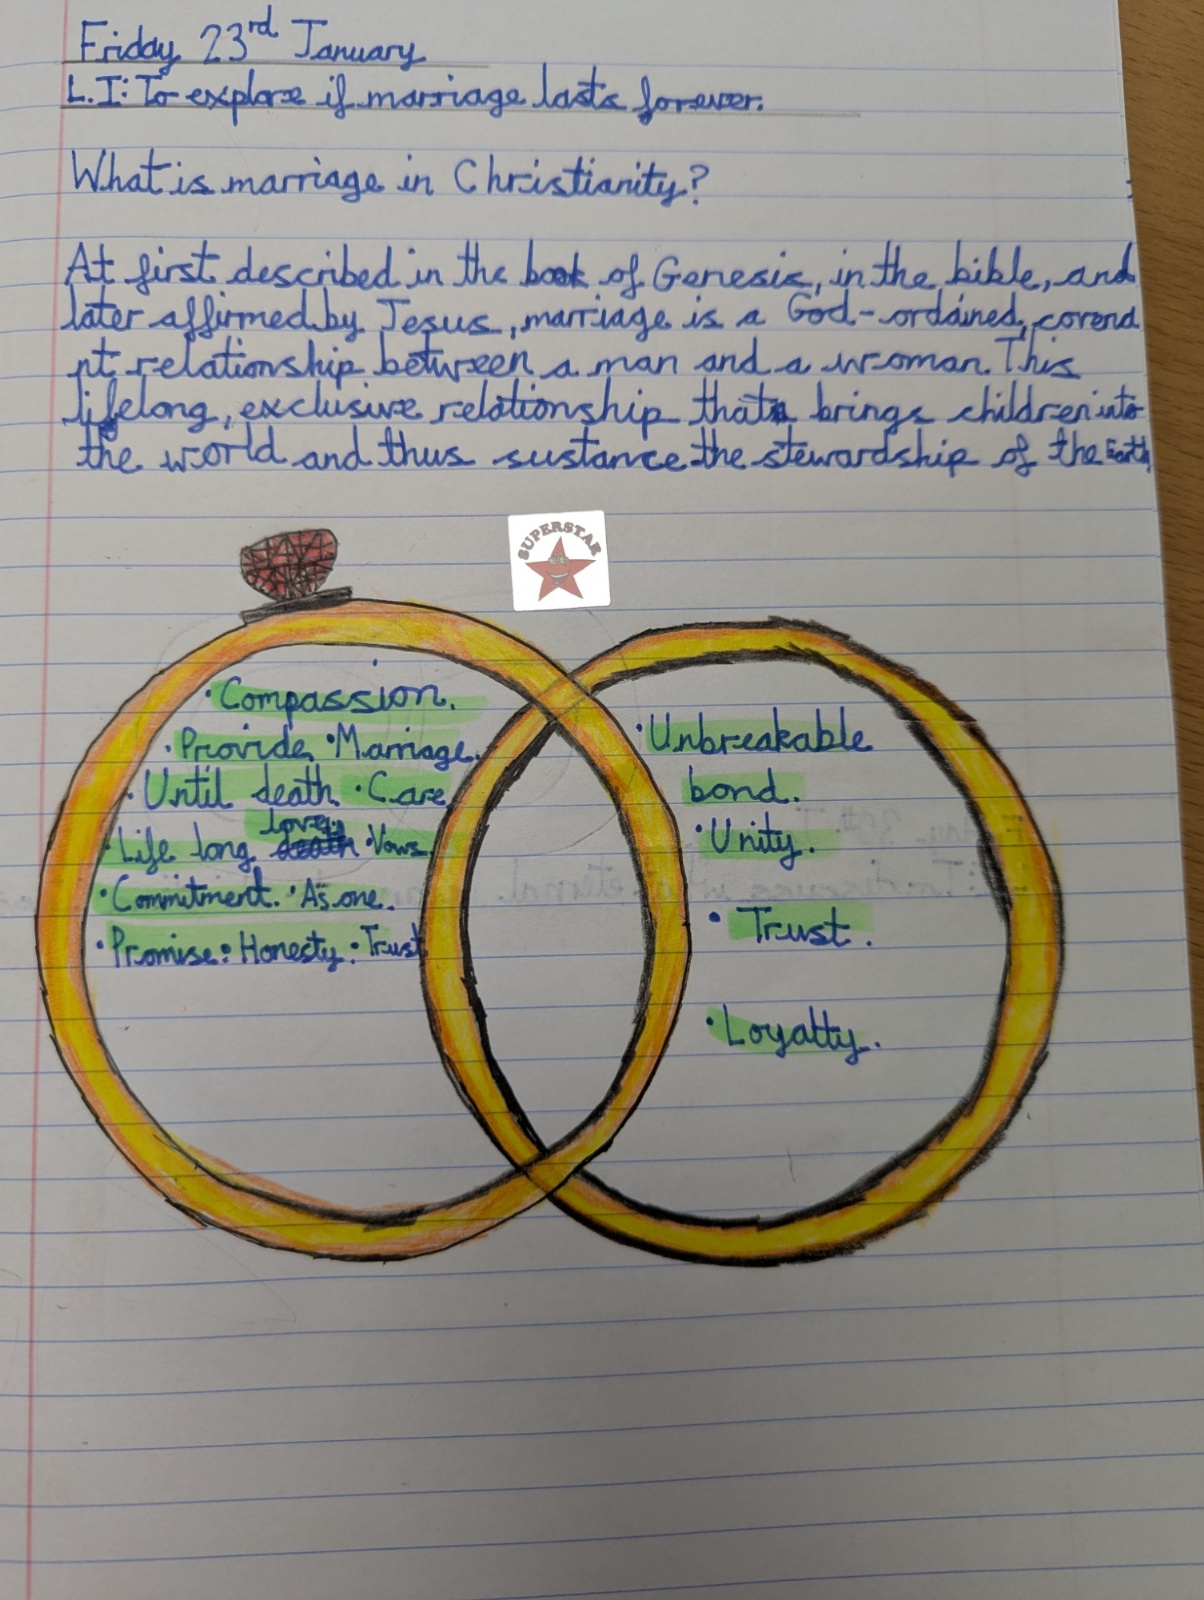 Friday 23rd January
L.I: To explore if marriage lasts forever.
What is marriage in Christianity?
At first described in the book of Genesis, in the bible, and
later affirmed by Jesus, marriage is a God-ordained, covena
nt relationship between a man and a woman. This
lifelong, exclusive relationship that brings children into
the world and thus sustance the stewardship of the Earth
SUPERSTAR
• Compassion.
• Provide • Marriage.
• Until death • Care
love
• Life long death • Vows
• Commitment. • As one.
• Promise • Honesty • Trust
• Unbreakable
bond.
• Unity.
• Trust.
• Loyalty.